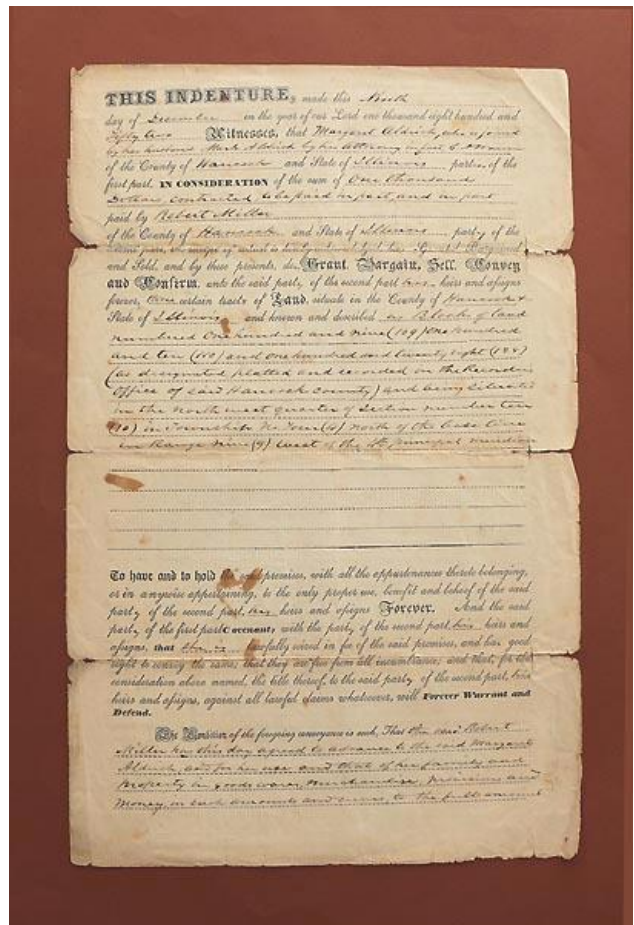 THIS INDENTURE, made this Ninth
day of December in the year of our Lord one thousand eight hundred and
Fifty two Witnesses, that Margaret Aldrich, who is joined
by her husband Mark Aldrich by his Attorney in fact
of the County of Hancock and State of Illinois parties of the
first part, IN CONSIDERATION of the sum of One thousand
Dollars, contracted to be paid in part, and in part
paid by Robert Miller
of the County of Hancock and State of Illinois party of the
second part, the receipt of which is hereby acknowledged, has Granted Bargained
and Sold, and by these presents, do Grant, Bargain, Sell, Convey
and Confirm, unto the said party of the second part his heirs and assigns
forever, certain tracts of Land, situate in the County of Hancock &
State of Illinois and known and described as Blocks of land
numbered One hundred and nine (109) One hundred
and ten (110) and one hundred and twenty eight (128)
(as designated platted and recorded on the Recorders
Office of said Hancock County) and being situated
in the North west quarter of Section number ten
(10) in Township No four (4) north of the base line
in Range nine (9) west of the 4th principal meridian
To have and to hold the said premises, with all the appurtenances thereto belonging,
or in anywise appertaining, to the only proper use, benefit and behoof of the said
party of the second part, his heirs and assigns Forever. And the said
party of the first part Covenant, with the party of the second part his heirs and
assigns, that lawfully seized in fee of the said premises, and has good
right to convey the same; that they are free from all incumbrance; and that, for the
consideration above named, the title thereof, to the said party of the second part, his
heirs and assigns, against all lawful claims whatsoever, will Forever Warrant and
Defend.
The Condition of the foregoing conveyance is such, That the said Robert
Miller has this day agreed to advance to the said Margaret
Aldrich, for her use and that of her family and
property in goods wares, merchandise, provisions and
money, in such amounts and to the full amount